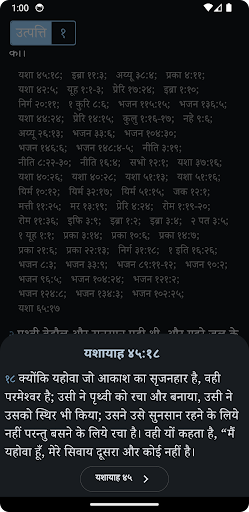 1:00
उत्पत्ति १
का।
यशा ४५:१८; इब्रा ११:३; अय्यू ३८:४; प्रका ४:११;
यशा ४२:५; यूह १:१-३; प्रेरि १७:२४; इब्रा १:१०;
निर्ग २०:११; १ कुरि ८:६; भजन ११५:१५; भजन १३६:५;
यशा ४४:२४; प्रेरि १४:१५; कुलु १:१६-१७; नहे ९:६;
अय्यू २६:१३; भजन ३३:६; भजन १०४:३०;
भजन १४६:६; भजन १४८:४-५; नीति ३:१९;
नीति ८:२२-३०; नीति १६:४; सभो १२:१; यशा ३७:१६;
यशा ४०:२६; यशा ४०:२८; यशा ५१:१३; यशा ५१:१६;
यिर्म १०:१२; यिर्म ३२:१७; यिर्म ५१:१५; जक १२:१;
मत्ती ११:२५; मर १३:१९; प्रेरि ४:२४; रोम १:१९-२०;
रोम ११:३६; इफि ३:९; इब्रा १:२; इब्रा ३:४; २ पत ३:५;
१ यूह १:१; प्रका ३:१४; प्रका १०:६; प्रका १४:७;
प्रका २१:६; प्रका २२:१३; निर्ग ३१:१८; १ इति १६:२६;
भजन ८:३; भजन ३३:९; भजन ८९:११-१२; भजन ९०:२;
भजन ९६:५; भजन १०४:२४; भजन १२१:२;
भजन १२४:८; भजन १३४:३; भजन १०२:२५;
यशा ६५:१७
२ पृथ्वी बेडौल और सुनसान पड़ी थी, और गहरे जल के
यशायाह ४५:१८
१८ क्योंकि यहोवा जो आकाश का सृजनहार है, वही
परमेश्वर है; उसी ने पृथ्वी को रचा और बनाया, उसी ने
उसको स्थिर भी किया; उसने उसे सुनसान रहने के लिये
नहीं परन्तु बसने के लिये रचा है। वही यों कहता है, “मैं
यहोवा हूँ, मेरे सिवाय दूसरा और कोई नहीं है।
यशायाह ४५